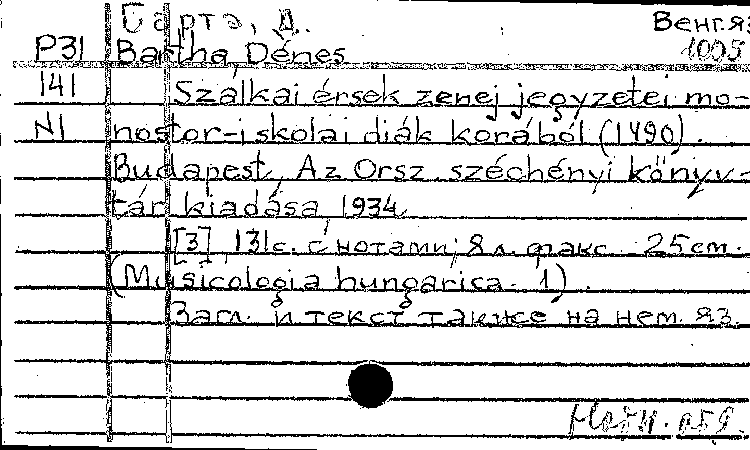 Барта, Д. Венг.яз
P31 Bartha, Dénes 1005
141 Szalkai érsek zenej jegyzetei mo-
N1 nostor-iskolai diák korából (1490).
Budapest, Az Orsz. széchényi könyv-
tár kiadása, 1934
[3], 131с. с нотами; 8 л. факс. 25cm.
(Musicologia hungarica. 1).
Загл. и текст также на нем. яз.